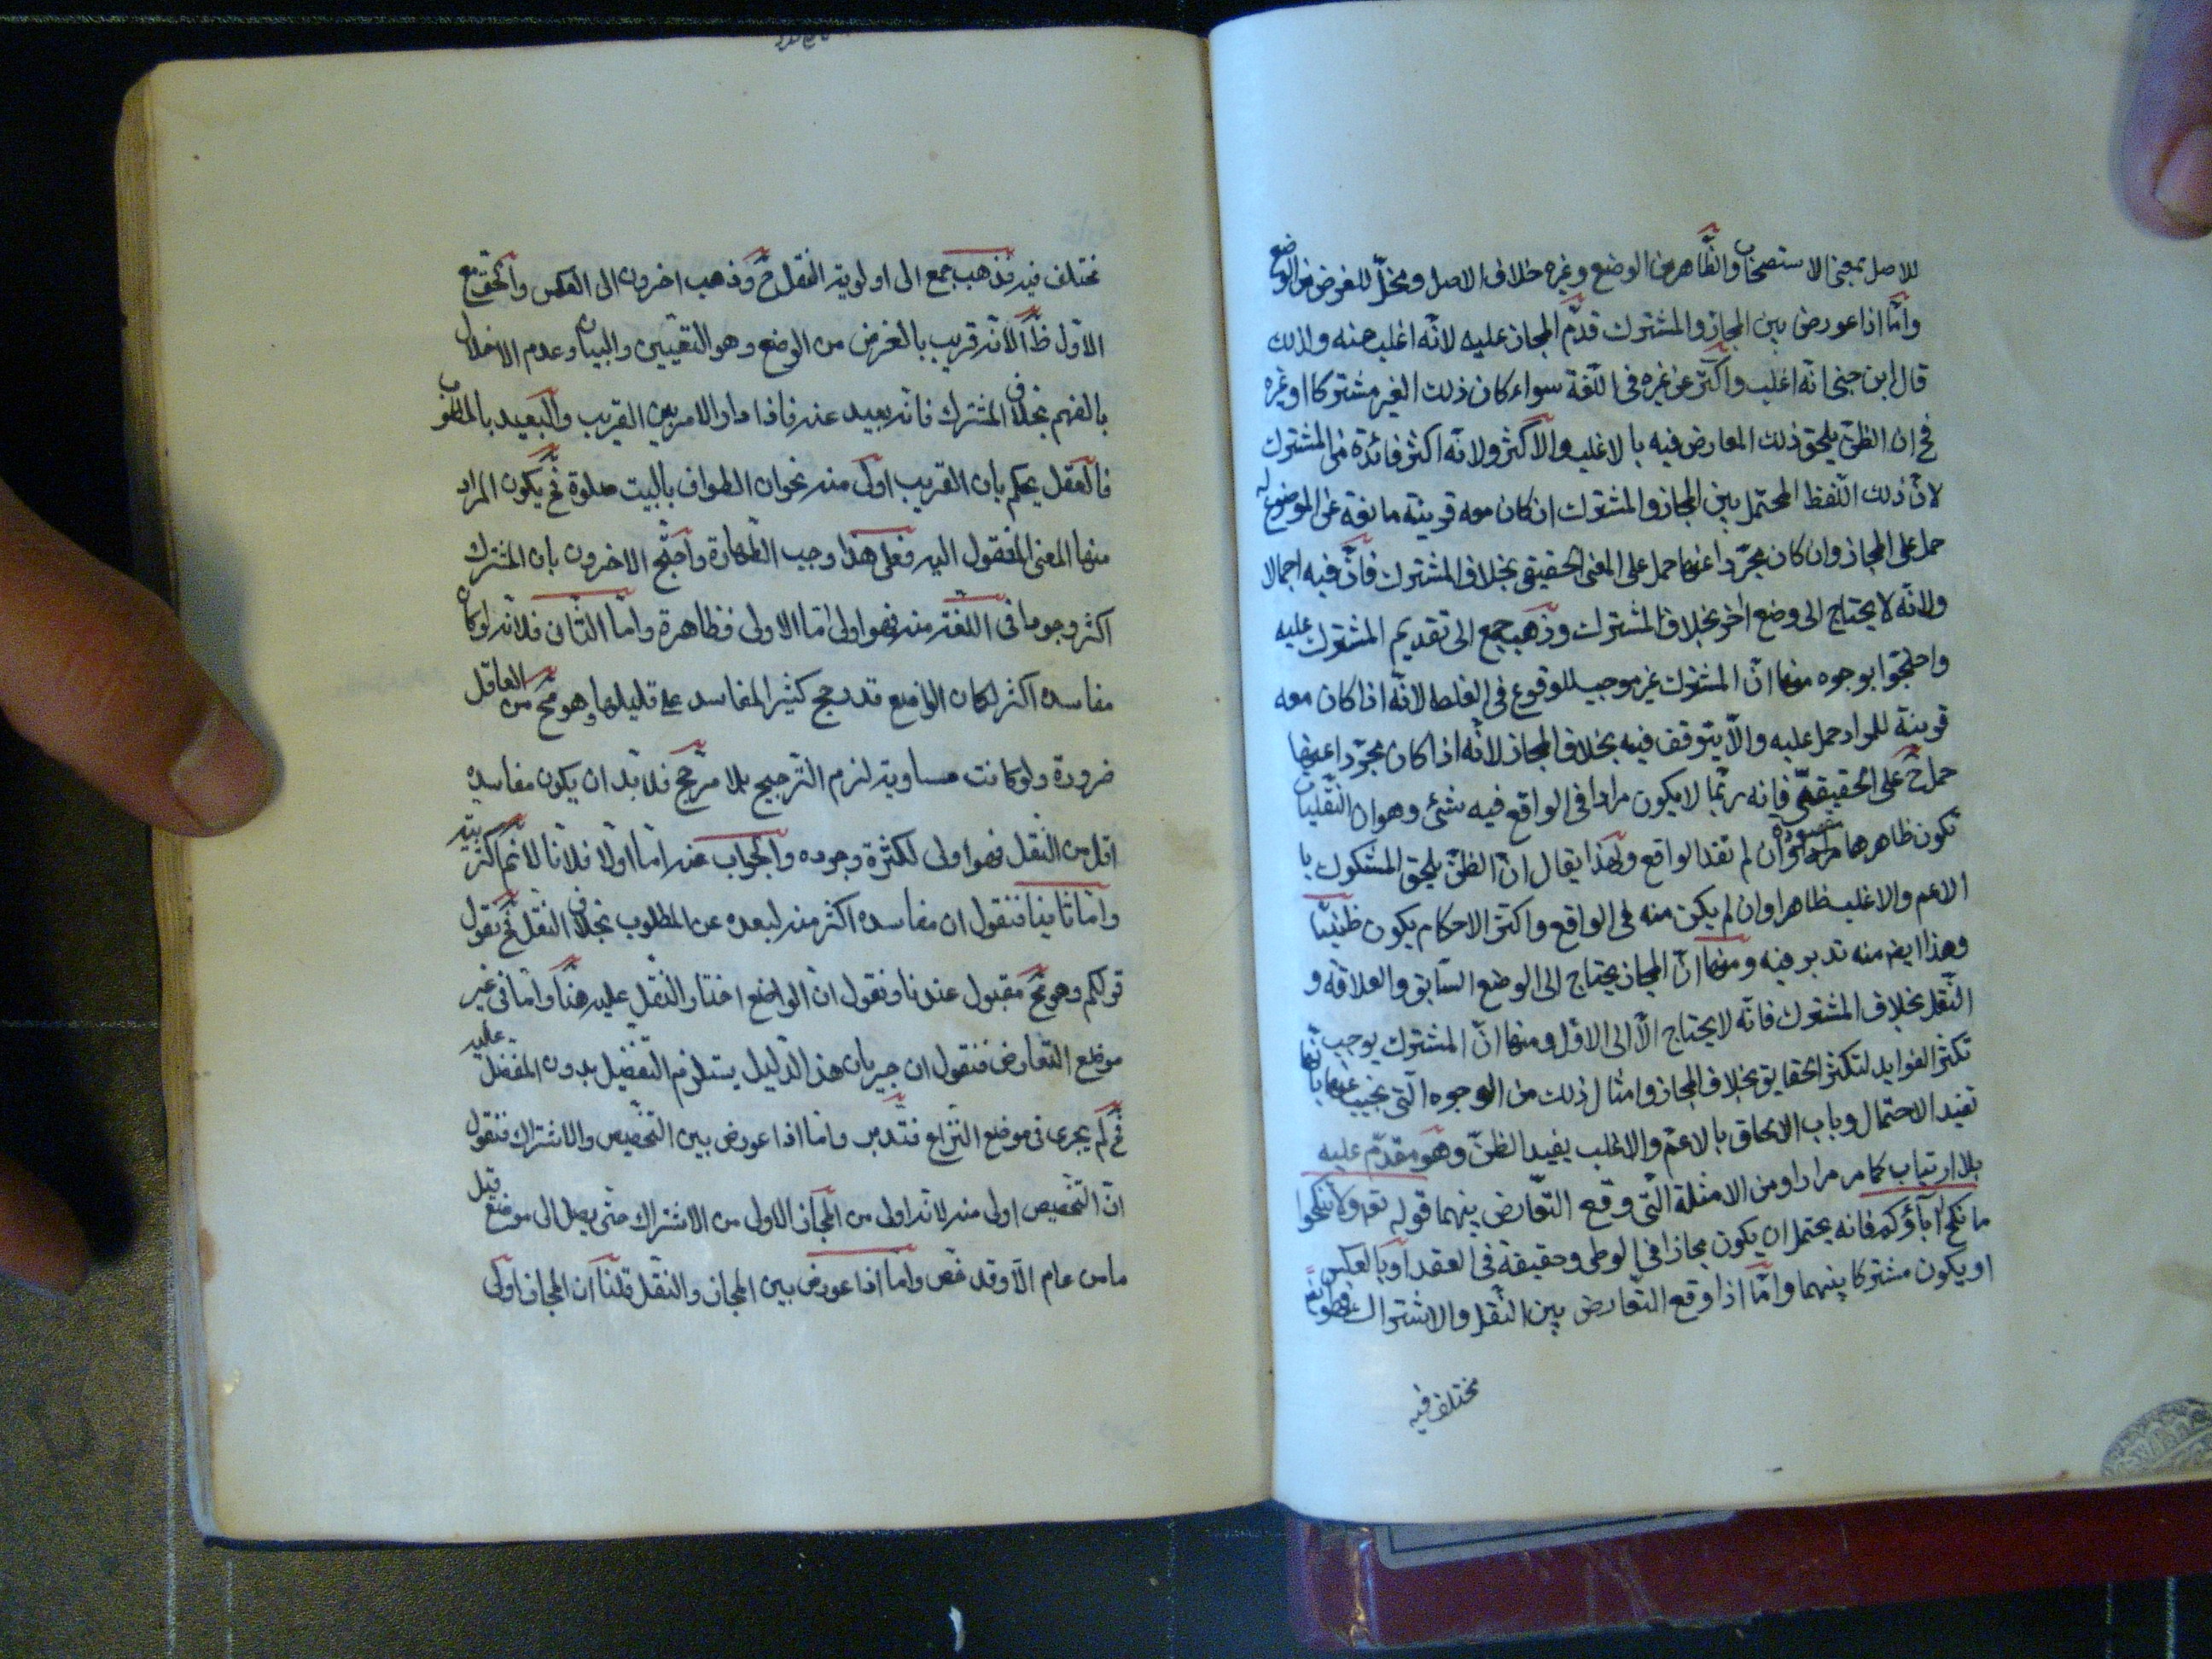 للاصل بمعنى الاستصحاب والظاهر من الوضع وغيره خلاف الاصل ومخل للغرض من الوضع
وامّا اذا عورض بين المجاز والمشترك قدّم المجاز عليه لانّه اغلب منه ولذلك
قال ابن جنى انّه اغلب واكثر عن غيره فى اللّغة سواء كان ذلك الغير مشتركا او غيره
فح ان الظنّ يلحق ذلك المعارض فيه بالاغلب والاكثر ولانّه اكثر فائدة من المشترك
لانّ ذلك اللّفظ المحتمل بين المجاز والمشترك ان كان معه قرينة مانعة عن الموضوع له
حمل على المجاز وان كان مجرّدا عنها حمل على المعنى الحقيقى بخلاف المشترك فانّ فيه اجمالا
ولانّه لا يحتاج الى وضع اخر بخلاف المشترك وذهب جمع الى تقديم المشترك عليه
واحتجّوا بوجوه منها انّ المشترك غير موجب للوقوع فى الغلط لانّه اذا كان معه
قرينة للمراد حمل عليه والّا يتوقف فيه بخلاف المجاز لانّه اذا كان مجرّدا عنها
حمل ح على الحقيقى فانه ربّما لا يكون مرادا فى الواقع فيه شئ وهو ان النقليات
تكون ظاهرها مرادة وان لم تفد الواقع ولهذا يقال انّ الظنّ يلحق المشكوك با
الاعم والاغلب ظاهرا وان لم يكن منه فى الواقع واكثر الاحكام يكون ظنّيّا
وهذا ايضم منه تدبر فيه ومنها انّ المجاز يحتاج الى الوضع السّابق والعلاقة و
النّقل بخلاف المشترك فانّه لا يحتاج الّا الى الاوّل ومنها انّ المشترك يوجب
تكثر الفوايد لتكثر الحقايق بخلاف المجاز وامثال ذلك من الوجوه الّتى نجيب عنها بانّها
تفيد الاحتمال وباب الالحاق بالاعمّ والاغلب يفيد الظنّ وهو مقدّم عليه
بلا ارتياب كما مر مرارا ومن الامثلة الّتى وقع التّعارض بينهما قوله تعه ولا تنكحوا
ما نكح اباؤكم فانه يحتمل ان يكون مجازا فى الوطى وحقيقة فى العقد او بالعكس
او يكون مشتركا بينهما وامّا اذا وقع التّعارض بين النّقل والاشتراك
مختلف فيه
مختلف فيه فذهب جمع الى اولوية النقل ح وذهب اخرون الى العكس والحق مع
الاول ظ لانه قريب بالغرض من الوضع وهو التعيين والبيان وعدم الاخلال
بالفهم بخلاف المشترك فانه بعيد عنه فاذا دار الامر بين القريب والبعيد بالمطلوب
فالعقل يحكم بان القريب اولى منه نحو ان الطواف بالبيت صلوة فح يكون المراد
منها المعنى المنقول اليه فعلى هذا وجب الطهارة واحتج الاخرون بان المشترك
اكثر وجودا فى اللغة منه فهو اولى امّا الاولى فظاهرة وامّا الثانى فلانه لو كان
مفاسده اكثر لكان الواضع قد رجح كثير المفاسد على قليلها وهو قبح من العاقل
ضرورة ولو كانت مساوية لزم الترجيح بلا مرجّح فلا بد ان يكون مفاسده
اقل من النقل فهو اولى لكثرة وجوده والجواب عنه امّا اولا فلانا لانم اكثريته
وامّا ثانيا فنقول ان مفاسده اكثر منه لبعده عن المطلوب بخلاف النقل فح نقول
قولكم وهو قبح مقبول عندنا ونقول انّ الواضع اختار النقل عليه هنا وامّا فى غير
موضع التعارض فنقول ان جريان هذا الدّليل يستلزم التفضيل بدون المفضل عليه
فح لم يجرى فى موضع النزاع فتدبر وامّا اذا عورض بين التخصيص والاشتراك فنقول
انّ التخصيص اولى منه لانه اولى من المجاز الاولى من الاشتراك حتّى يصل الى موضع قيل
ما من عام الّا وقد خصّ وامّا اذا عورض بين المجاز والنقل قلنا ان المجاز اولى